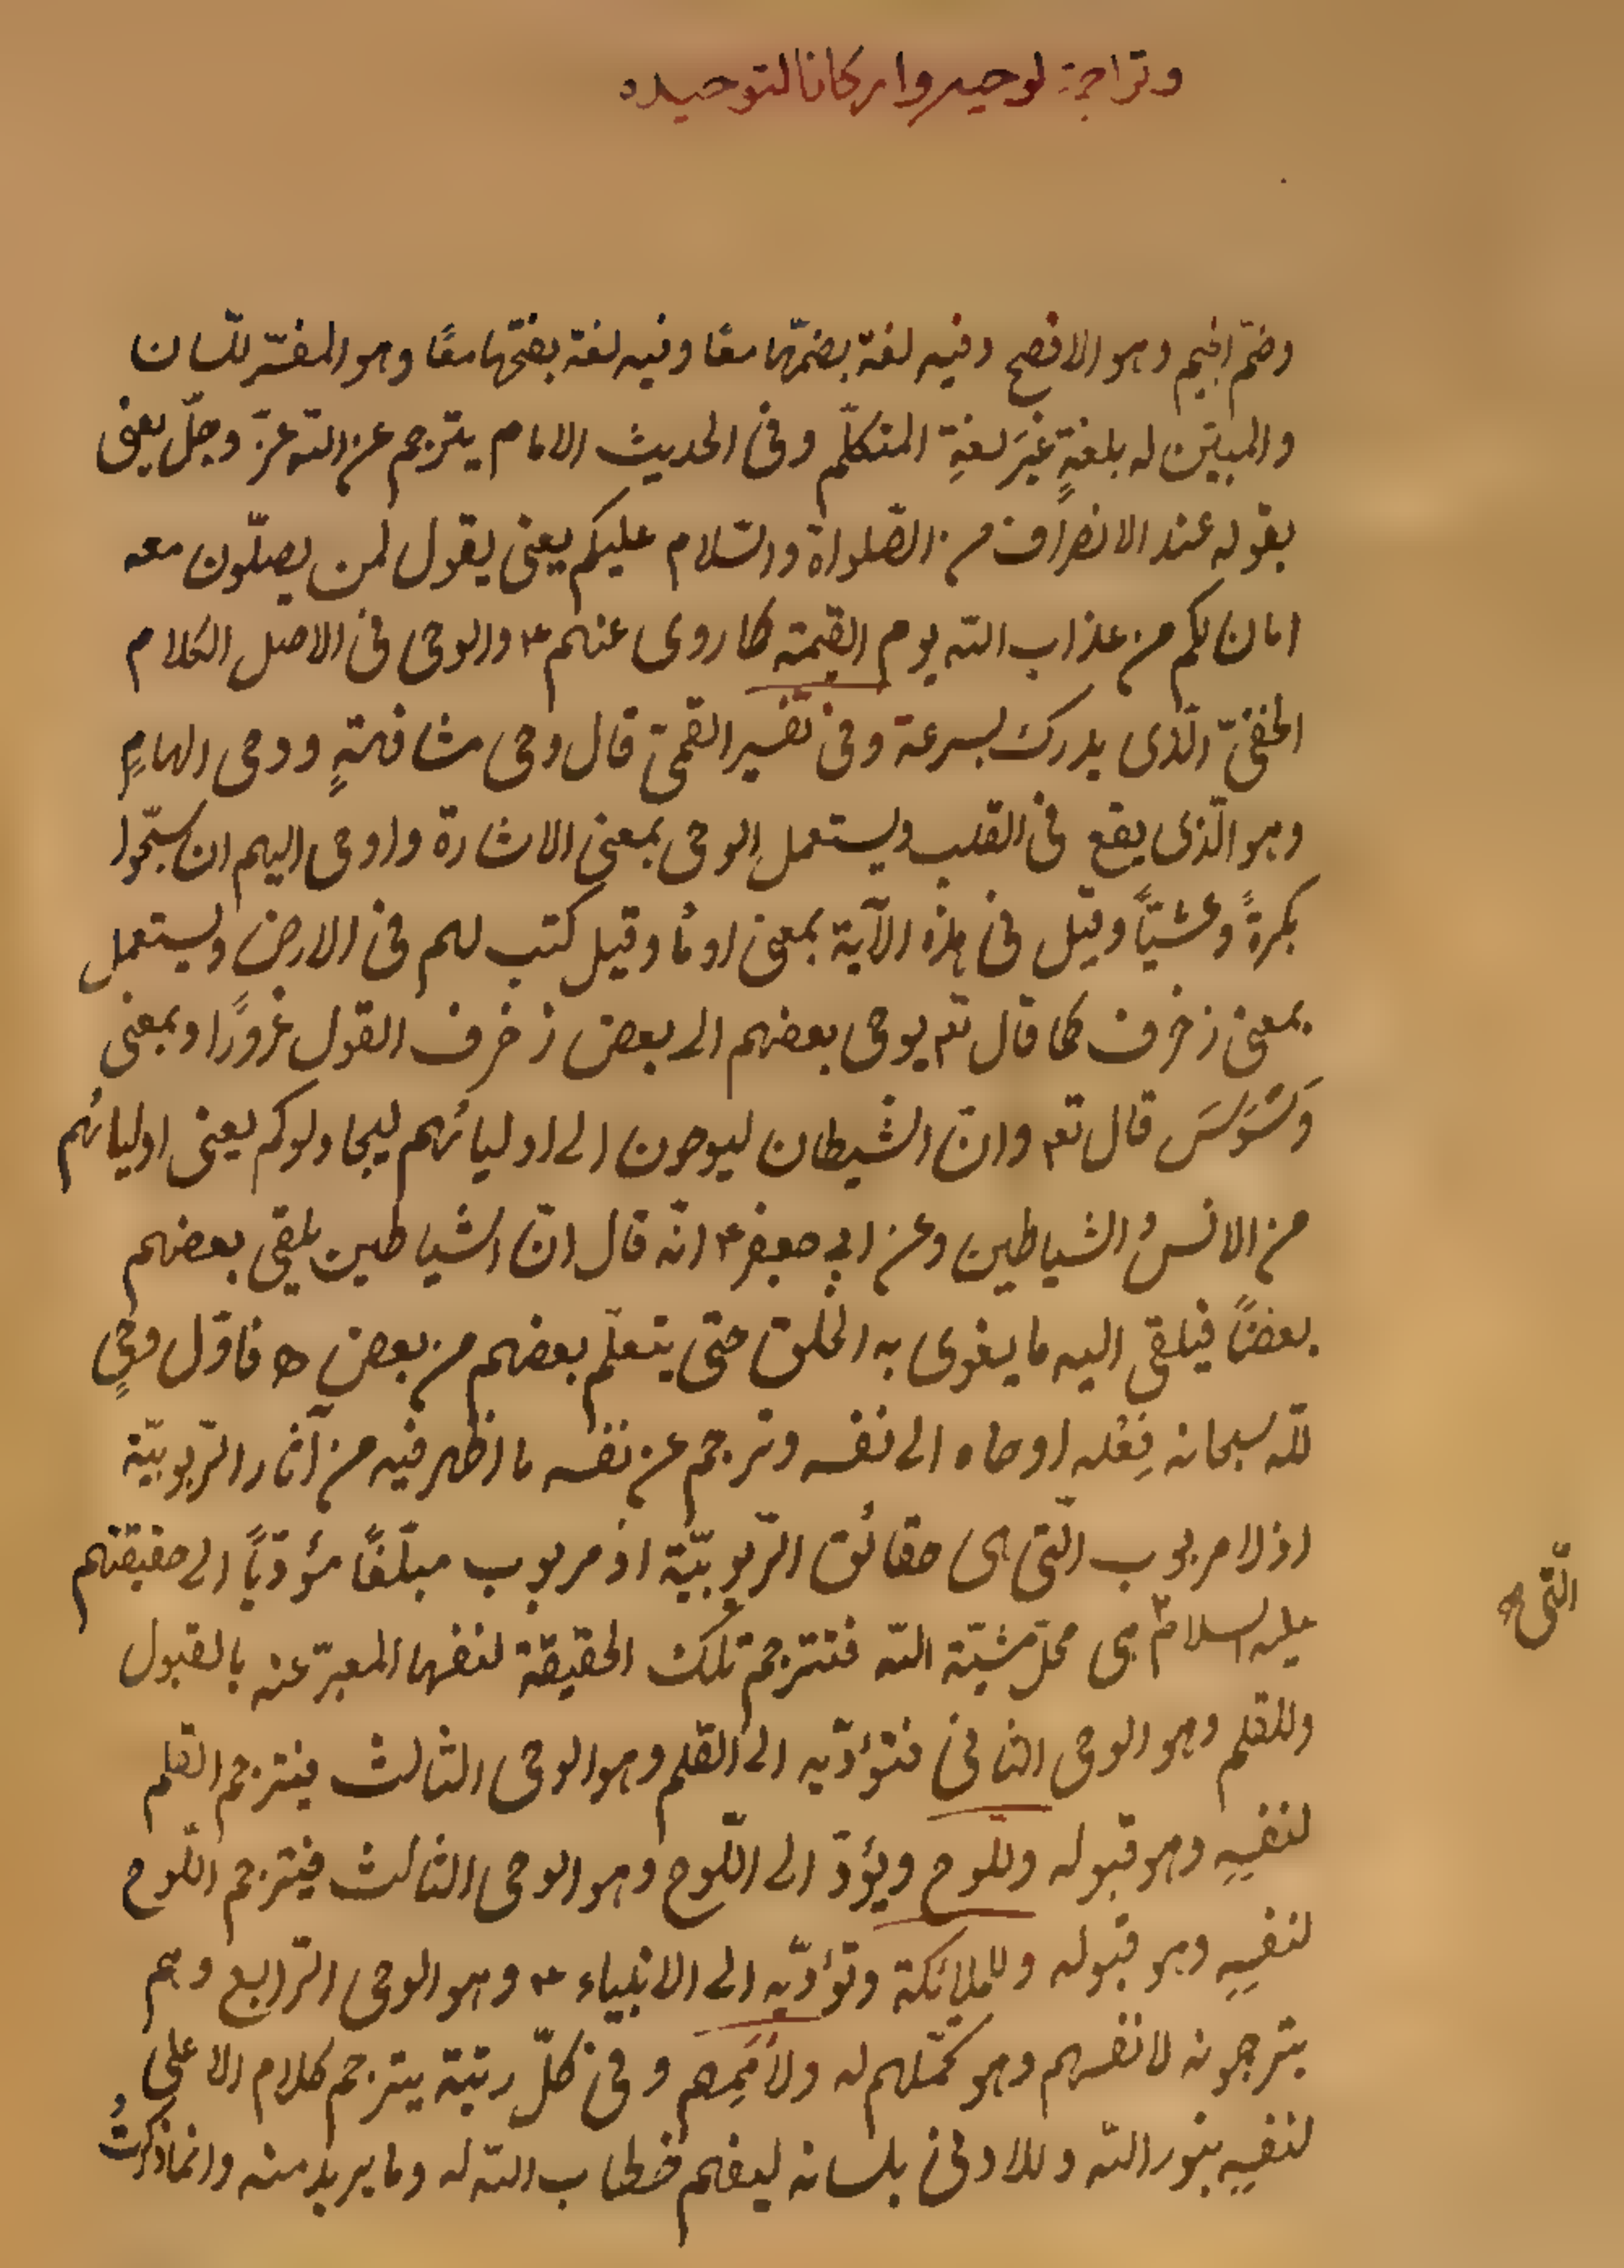 وتراجمة لوحيه واركانا لتوحيده
وضمّ الجيم وهو الافصح وفيه لغة بضمّهما معًا وفيه لغة بفتحهما معًا وهو المفسّر للّسان
والمبيّن له بلغةٍ غيَر لغةِ المتكلّم وفى الحديث الامام يترجم عن الله عزّ وجلّ يعنى
بقوله عند الانصراف من الصّلواة والسّلام عليكم يعنى يقول لمن يصلّون معه
امان لكم من عذاب الله يوم القيمة كما روى عنهم ع والوحى فى الاصل الكلام
الخفىّ الّذى يدرك بسرعة وفى تفسير القمىّ قال وحى مشافهةٍ ووحى الهامٍ
وهو الّذى يقع فى القلب ويستعمل الوحى بمعنى الاشارة واوحى اليهم ان سبّحوا
بكرةً وعشيّاً وقيل فى هذه الآية بمعنى اومأ وقيل كتب لهم فى الارض ويستعمل
بمعنى زخرف كما قال تع يوحى بعضهم الى بعض زخرف القول غرورًا وبمعنى
وَسْوَسَ قال تع وانّ الشّيطان ليوحون الى اوليائهم ليجادلوكم يعنى اوليائهم
من الانس والشياطين وعن ابى جعفر ع انّه قال انّ الشّياطين يلقى بعضهم
بعضًا فيلقى اليه ما يغوى به الخلق حتى يتعلّم بعضهم من بعض ه فاوّل وحىٍ
للّه سبحانه فِعْله اوحاه الى نفسه وترجم عن نفسه ما اظهر فيه من آثار الرّبوبيّة
اذ لا مربوب الّتى هى حقائق الرّبوبيّة اذ مربوب مبلّغًا مؤدّيًا الى حقيقتهم
عليهم السلام هى محلّ مشيّة الله فتترجم تلك الحقيقة لنفسها المعبّر عنه بالقبول
الّتى
وللقلم وهو الوحى الثانى فتؤدّيه الى القلم وهو الوحى الثالث فيترجم القلم
لنفسِهِ وهو قبوله وللّوح ويؤدّ الى اللّوح وهو الوحى الثالث فيترجم اللّوح
لنفسِهِ وهو قبوله وللملائكة وتؤدّيه الى الانبياء ع وهو الوحى الرّابع وهم
يترجمونه لانفسهم وهو تحمّلهم له ولأمَمِهم وفى كلّ رتبة يترجم كلام الاعلى
لنفسِهِ بنور الله وللادنى بلسانه ليفهم خطاب الله له وما يريد منه وانما ذكرتُ